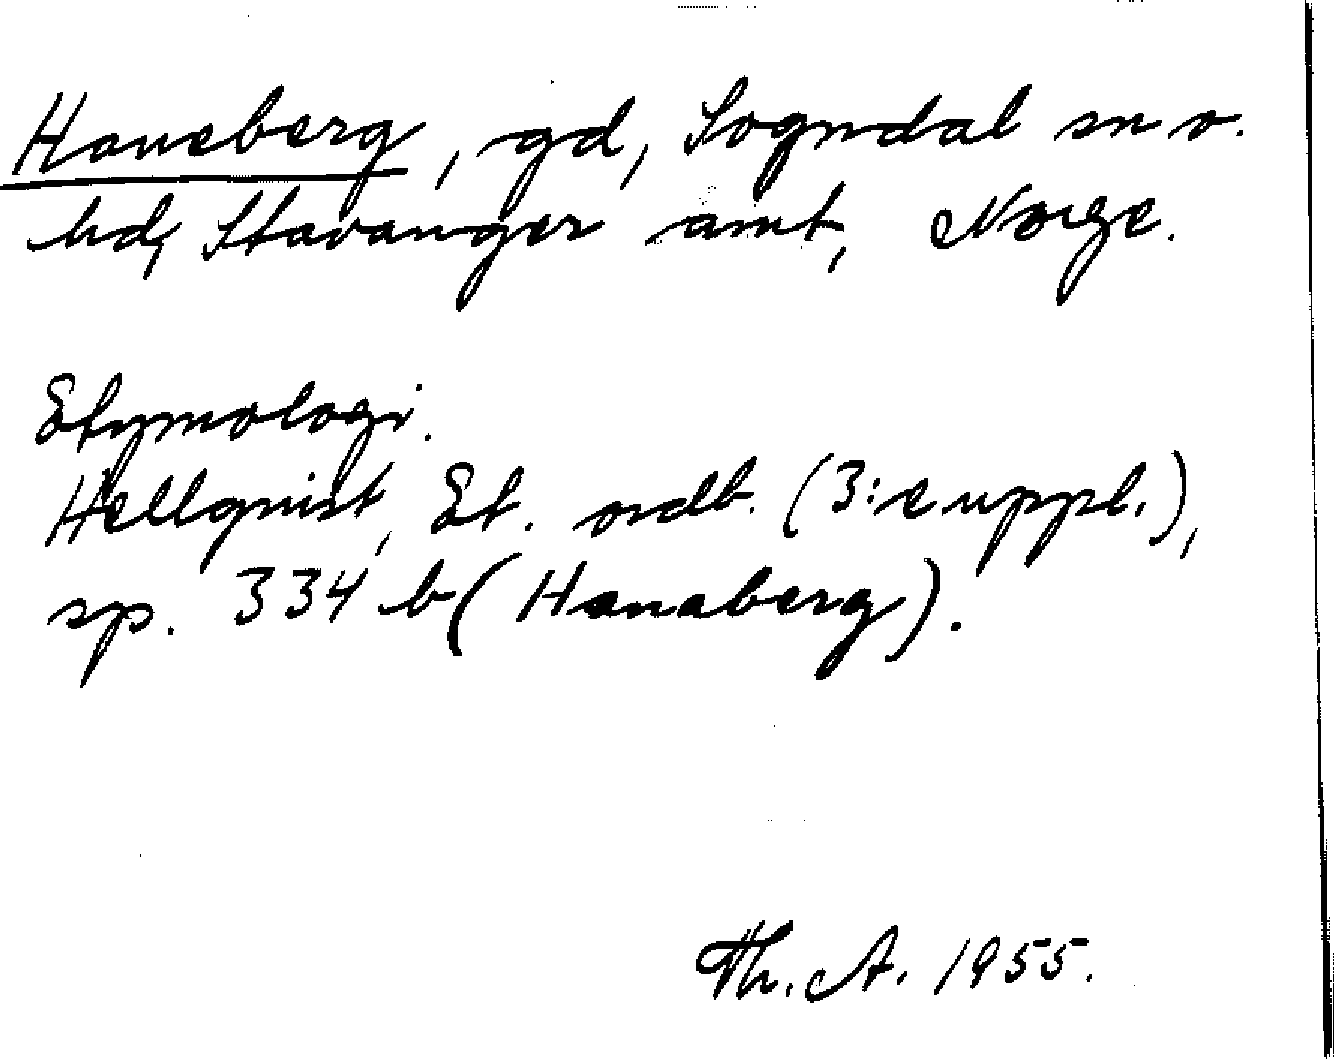 Haneberg, gd, Sogndal sn o.
hd, Stavanger amt, Norge.
Etymologi.
Hellquist, Et. ordb. (3:e uppl.),
sp. 334 b (Hanaberg).
Th. A. 1955.